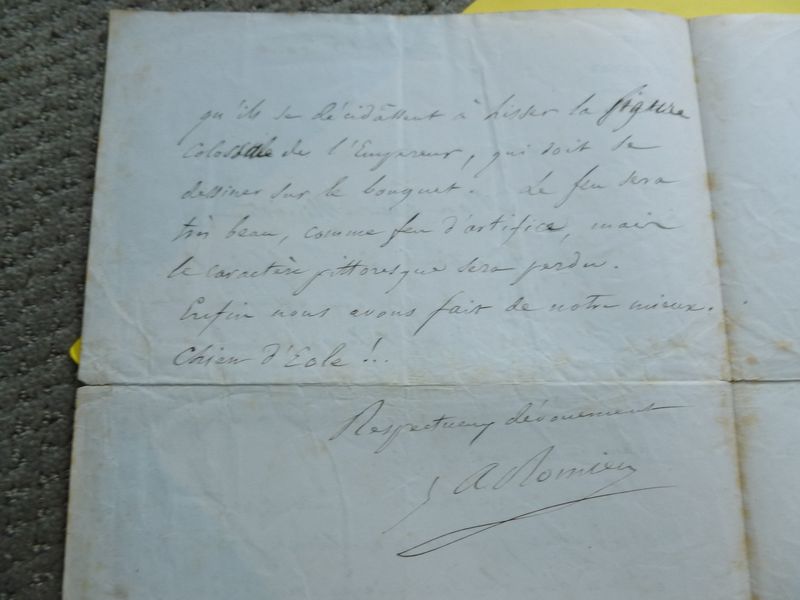 qu'ils se décidâssent à hisser la figure
colossale de l'Empereur, qui doit se
dessiner sur le bouquet. Le feu sera
très beau, comme feu d'artifice, mais
le caractère pittoresque sera perdu.
Enfin nous avons fait de notre mieux.
Chien d'Eole !..
Respectueux dévouement
A Romieu